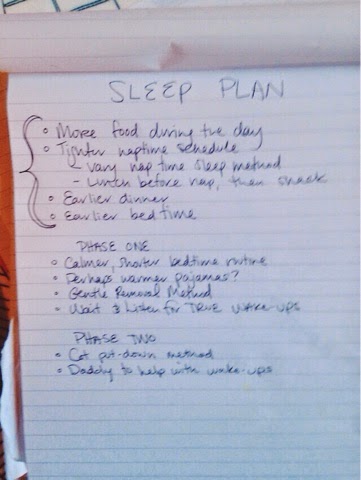 SLEEP PLAN
• More food during the day
• Tighter naptime schedule
- vary nap time sleep method
- Lunch before nap, then snack
• Earlier dinner
• Earlier bedtime
PHASE ONE
• Calmer, shorter bedtime routine
• Perhaps warmer pajamas?
• Gentle Removal Method
• Wait & Listen for TRUE WAKE-UPS
PHASE TWO
• Cot put-down method
• Daddy to help with wake-ups